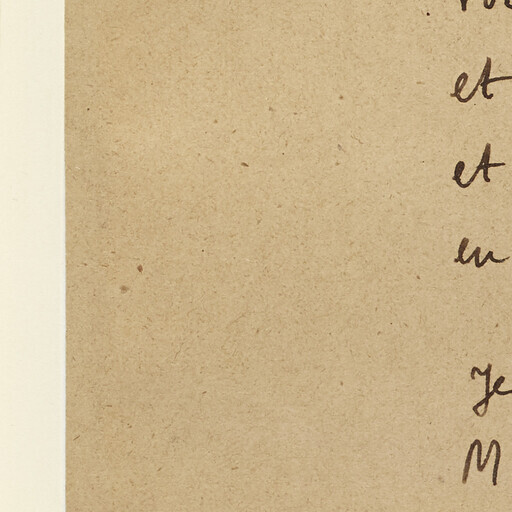 et
et
en
Je
M